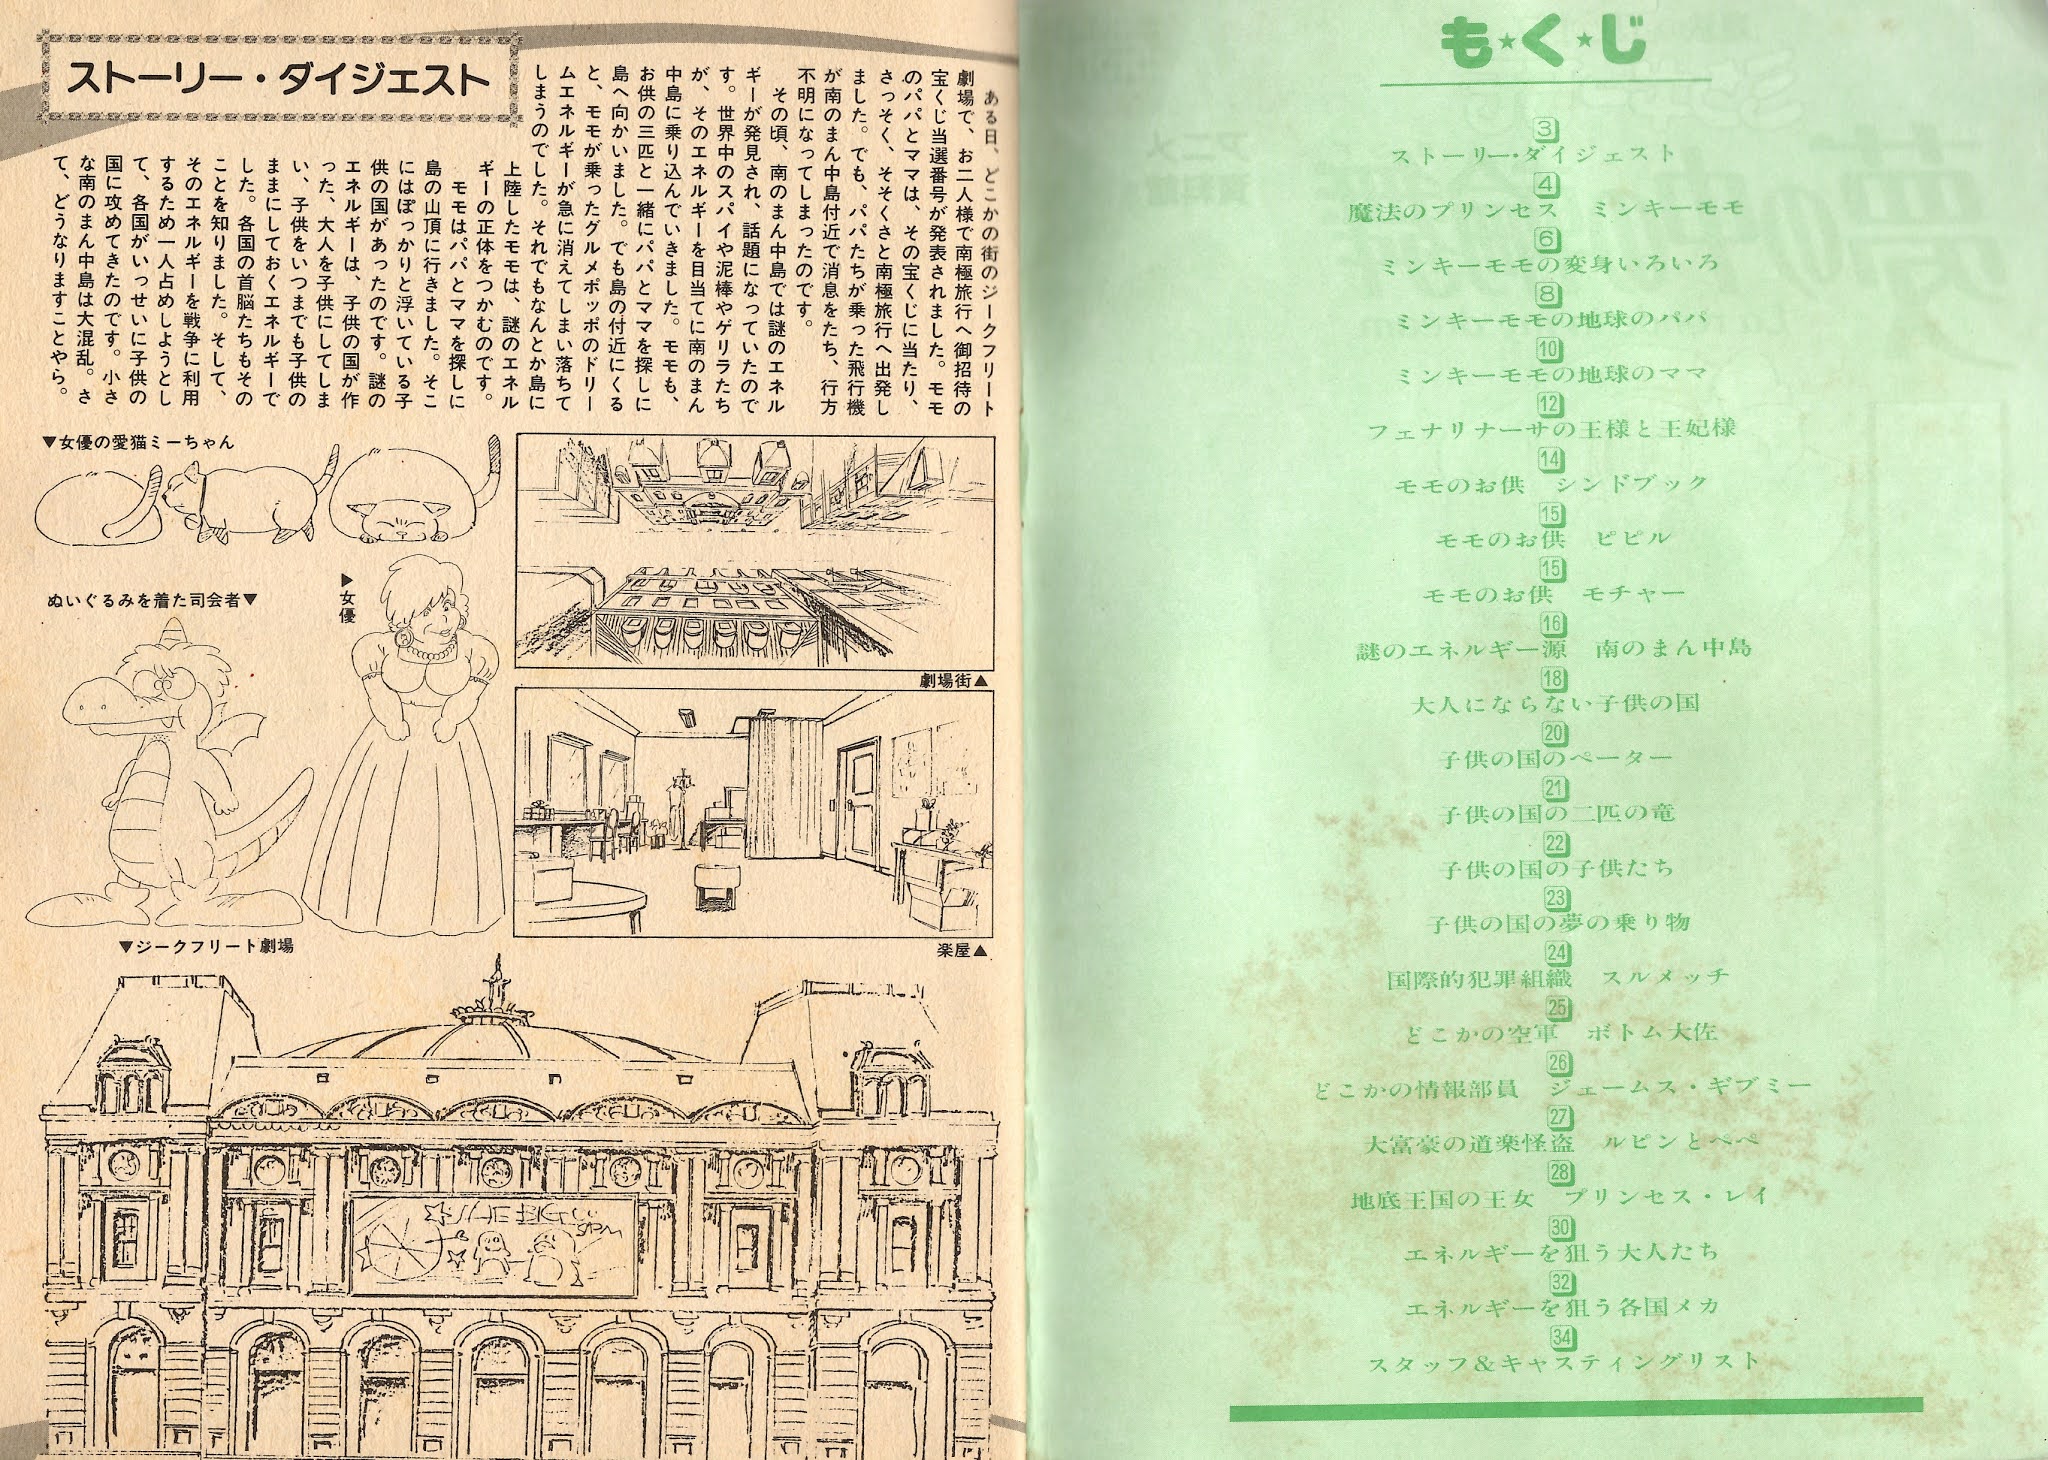 も★く★じ
3
ストーリー・ダイジェスト
4
魔法のプリンセス ミンキーモモ
6
ミンキーモモの変身いろいろ
8
ミンキーモモの地球のパパ
10
ミンキーモモの地球のママ
12
フェナリナーサの王様と王妃様
14
モモのお供 シンドブック
15
モモのお供 ピピル
15
モモのお供 モチャー
16
謎のエネルギー源 南のまん中島
18
大人にならない子供の国
20
子供の国のペーター
21
子供の国の二匹の竜
22
子供の国の子供たち
23
子供の国の夢の乗り物
24
国際的犯罪組織 スルメッチ
25
どこかの空軍 ボトム大佐
26
どこかの情報部員 ジェームス・ギブミー
27
大富豪の道楽怪盗 ルピンとペペ
28
地底王国の王女 プリンセス・レイ
30
エネルギーを狙う大人たち
32
エネルギーを狙う各国メカ
34
スタッフ&キャスティングリスト
ストーリー・ダイジェスト
ある日、どこかの街のジークフリート
劇場で、お二人様で南極旅行へ御招待の
宝くじ当選番号が発表されました。モモ
のパパとママは、その宝くじに当たり、
さっそく、そそくさと南極旅行へ出発し
ました。でも、パパたちが乗った飛行機
が南のまん中島付近で消息をたち、行方
不明になってしまったのです。
その頃、南のまん中島では謎のエネル
ギーが発見され、話題になっていたので
す。世界中のスパイや泥棒やゲリラたち
が、そのエネルギーを目当てに南のまん
中島に乗り込んでいきました。モモも、
お供の三匹と一緒にパパとママを探しに
島へ向かいました。でも島の付近にくる
と、モモが乗ったグルメポッポのドリー
ムエネルギーが急に消えてしまい落ちて
しまうのでした。それでもなんとか島に
上陸したモモは、謎のエネル
ギーの正体をつかむのです。
モモはパパとママを探しに
島の山頂に行きました。そこ
にはぽっかりと浮いている子
供の国があったのです。謎の
エネルギーは、子供の国が作
った、大人を子供にしてしま
い、子供をいつまでも子供の
ままにしておくエネルギーで
した。各国の首脳たちもその
ことを知りました。そして、
そのエネルギーを戦争に利用
するため一人占めしようとし
て、各国がいっせいに子供の
国に攻めてきたのです。小さ
な南のまん中島は大混乱。さ
て、どうなりますことやら。
▼女優の愛猫ミーちゃん
ぬいぐるみを着た司会者▼
▶女優
劇場街▲
楽屋▲
▼ジークフリート劇場